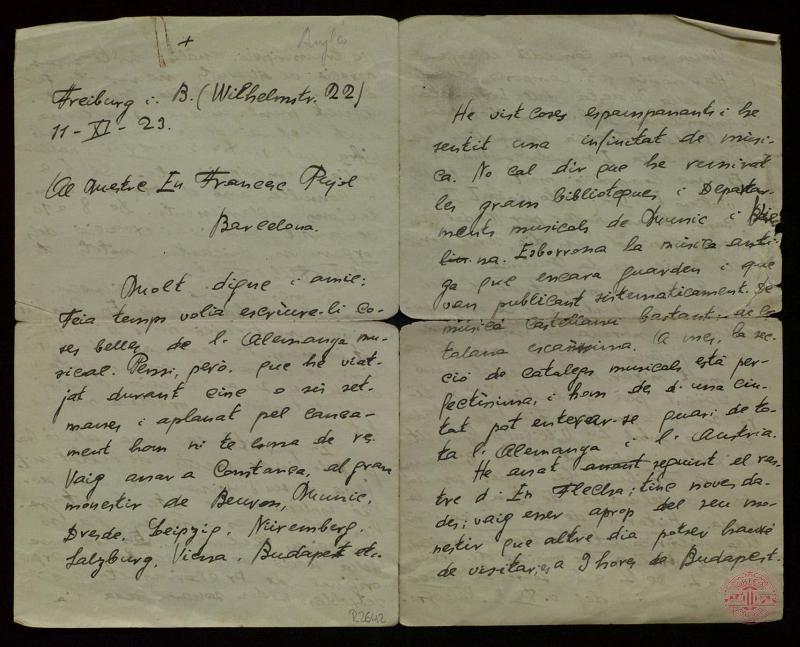 Anglès
+
Freiburg i. B. (Wilhelmstr. 22)
11 - XI - 23.
Al Mestre En Francesc Pujol
Barcelona.
Molt digne i amic:
Feia temps volia escriure-li co-
ses belles de l'Alemanya mu-
sical. Pensi, però, que he viat-
jat durant cinc o sis set-
manes i aplanat pel cansa-
ment hom ni te esma de res.
Vaig anar a Constança, al gran
monestir de Beuron, Munic,
Dresde, Leipzig, Nüremberg,
Salzburg, Viena, Budapest etc.
R2642
He vist coses espampanants i he
sentit una infinitat de músi-
ca. No cal dir que he remirat
les grans biblioteques i Departa-
ments musicals de Munic i
Esborrona la música anti-
ga que encara guarden i que
van publicant sistemàticament. De
música castellana bastant, de ca-
talana escassíssima. A mes, la sec-
ció de catalegs musicals està per-
fectíssima, i hom des d'una ciu-
tat pot entercar-se quasi de to-
ta l'Alemanya i l'Austria.
He anat seguint el ras-
tre d'En Flecha; tinc noves da-
des; vaig esser aprop del seu mo-
nestir que altre dia potser hauré
de visitar, a 9 hores de Budapest.